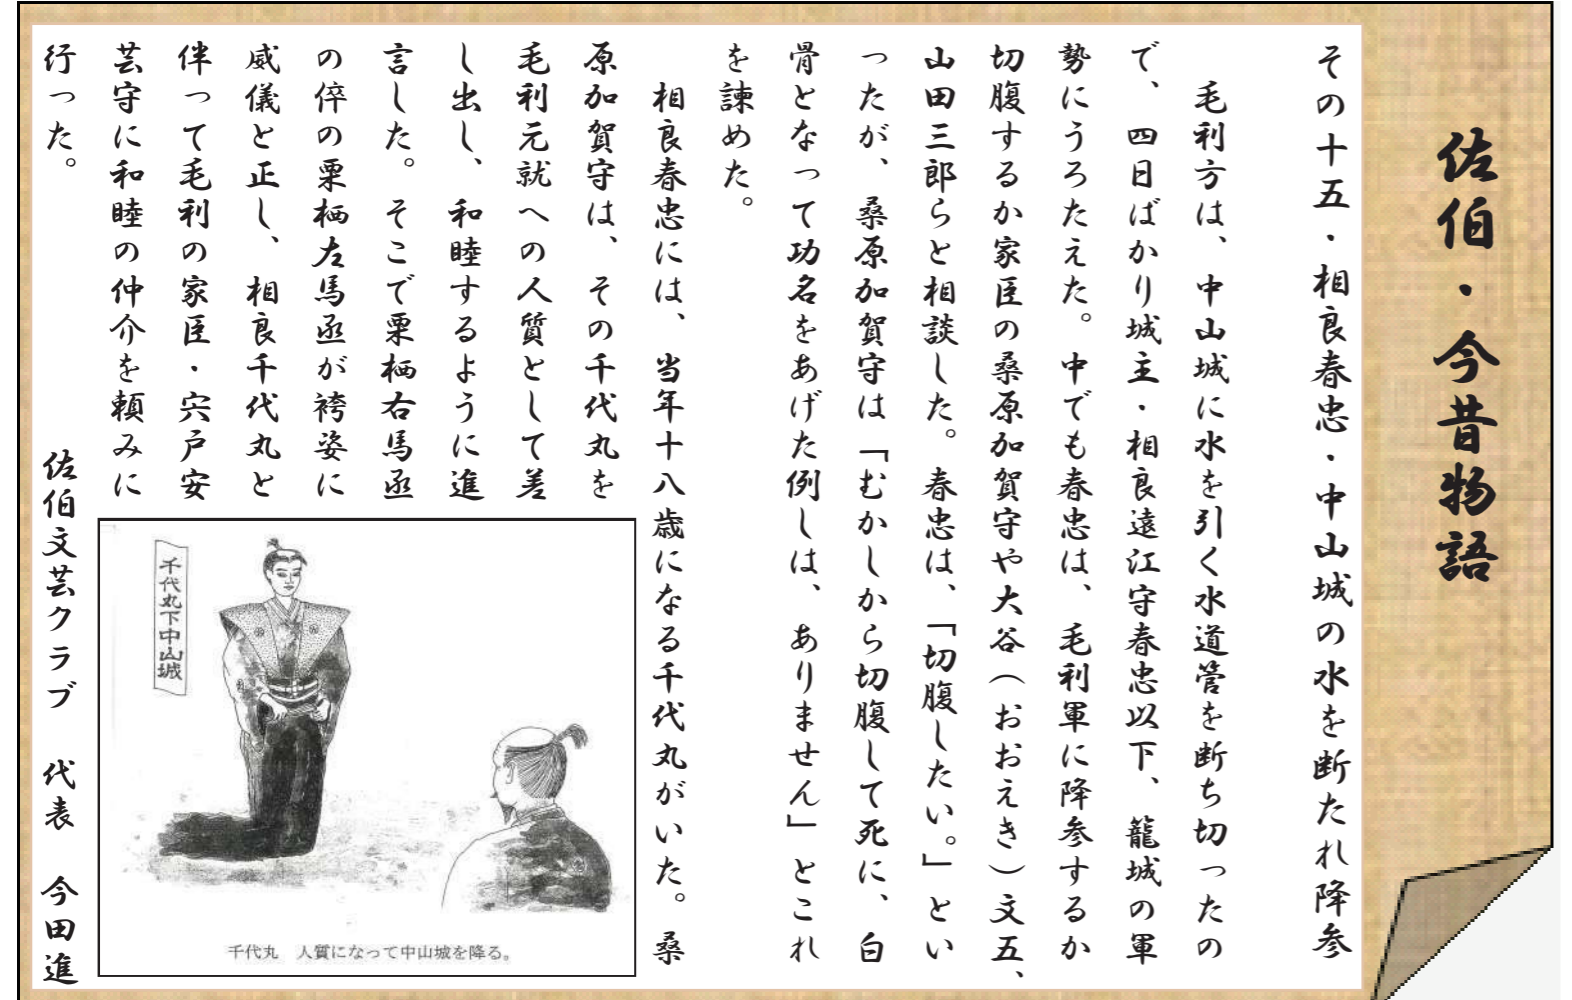 佐伯・今昔物語
その十五・相良春忠・中山城の水を断たれ降参
毛利方は、中山城に水を引く水道管を断ち切ったの
で、四日ばかり城主・相良遠江守春忠以下、籠城の軍
勢にうろたえた。中でも春忠は、毛利軍に降参するか
切腹するか家臣の桑原加賀守や大谷（おおえき）文五、
山田三郎らと相談した。春忠は、「切腹したい。」とい
ったが、桑原加賀守は「むかしから切腹して死に、白
骨となって功名をあげた例しは、ありません」とこれ
を諫めた。
相良春忠には、当年十八歳になる千代丸がいた。桑
原加賀守は、その千代丸を
毛利元就への人質として差
し出し、和睦するように進
言した。そこで栗栖右馬丞
の倅の栗栖左馬丞が袴姿に
威儀と正し、相良千代丸と
伴って毛利の家臣・宍戸安
芸守に和睦の仲介を頼みに
行った。
千代丸下中山城
千代丸　人質になって中山城を降る。
佐伯文芸クラブ　代表　今田進